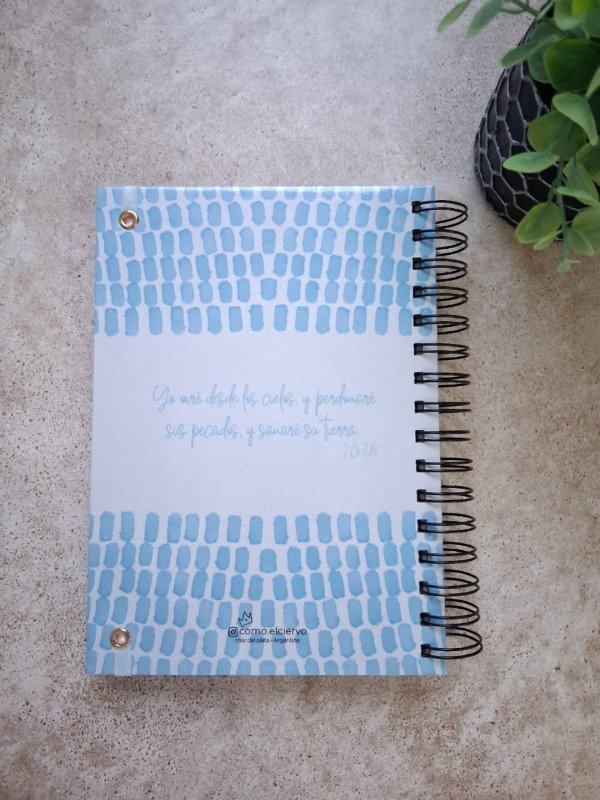 Yo oiré desde los cielos, y perdonaré
sus pecados, y sanaré su tierra
2 Cr 7:14
como.elciervo
mar del plata - Argentina